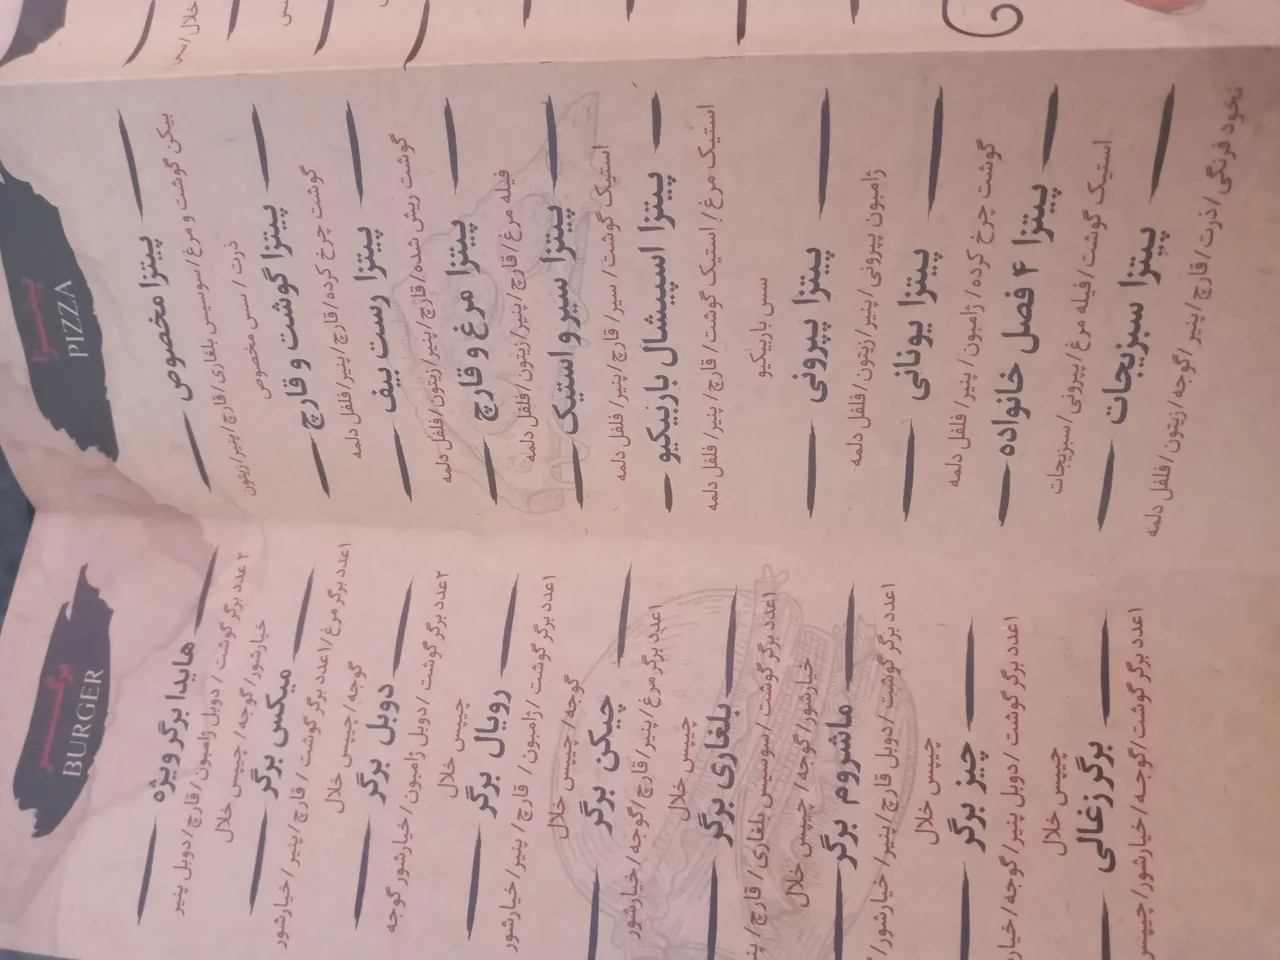 پیتزا
PIZZA
پیتزا مخصوص
بیکن گوشت و مرغ/سوسیس بلغاری/قارچ/پنیر/زیتون
ذرت/سس مخصوص
پیتزا گوشت و قارچ
گوشت چرخ کرده/قارچ/پنیر/فلفل دلمه
پیتزا رست بیف
گوشت ریش شده/قارچ/پنیر/زیتون/فلفل دلمه
پیتزا مرغ و قارچ
فیله مرغ/قارچ/پنیر/زیتون/فلفل دلمه
پیتزا سیر و استیک
استیک گوشت/سیر/قارچ/پنیر/فلفل دلمه
پیتزا اسپیشال باربیکیو
استیک مرغ/استیک گوشت/قارچ/پنیر/فلفل دلمه
سس باربیکیو
پیتزا پپرونی
ژامبون پپرونی/پنیر/زیتون/فلفل دلمه
پیتزا یونانی
گوشت چرخ کرده/ژامبون/پنیر/فلفل دلمه
پیتزا ۴ فصل خانواده
استیک گوشت/فیله مرغ/پپرونی/سبزیجات
پیتزا سبزیجات
نخود فرنگی/ذرت/قارچ/پنیر/گوجه/زیتون/فلفل دلمه
برگر
BURGER
هایدا برگر ویژه
۲عدد برگر گوشت/دوبل ژامبون/قارچ/دوبل پنیر
خیارشور/گوجه/چیپس خلال
میکس برگر
۱عدد برگر مرغ/۱عدد برگر گوشت/قارچ/پنیر/خیارشور
گوجه/چیپس خلال
دوبل برگر
۲عدد برگر گوشت/دوبل ژامبون/خیارشور گوجه
چیپس خلال
رویال برگر
۱عدد برگر گوشت/ژامبون/قارچ/پنیر/خیارشور
گوجه/چیپس خلال
چیکن برگر
۱عدد برگر مرغ/پنیر/قارچ/گوجه/خیارشور
چیپس خلال
بلغاری برگر
۱عدد برگر گوشت/سوسیس بلغاری/قارچ/
خیارشور/گوجه/چیپس خلال
ماشروم برگر
۱عدد برگر گوشت/دوبل قارچ/پنیر/خیارشور/
چیپس خلال
چیز برگر
۱عدد برگر گوشت/دوبل پنیر/گوجه/
چیپس خلال
برگر زغالی
۱عدد برگر گوشت/گوجه/خیارشور/چیپس